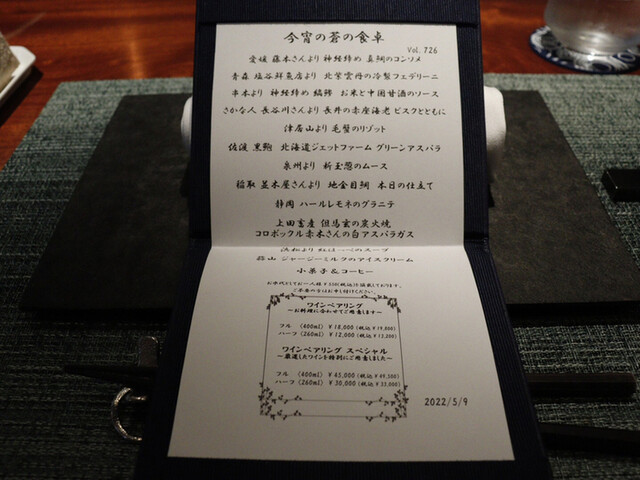 今宵の蒼の食卓
Vol. 726
愛媛 藤本さんより 神経締め 真鯛のコンソメ
青森 塩谷鮮魚店より 北紫雲丹の冷製フェデリーニ
串本より 神経締め 縞鯵 お米と中国甘酒のソース
さかな人 長谷川さんより 長井の赤座海老 ビスクとともに
津居山より 毛蟹のリゾット
佐渡 黒鮑 北海道ジェットファーム グリーンアスパラ
泉州より 新玉葱のムース
稲取 並木屋さんより 地金目鯛 本日の仕立て
静岡 ハールレモネのグラニテ
上田畜産 但馬玄の炭火焼
コロポックル赤木さんの白アスパラガス
蒜山 ジャージーミルクのアイスクリーム
小菓子&コーヒー
お水代としてお一人様￥550(税込)頂戴しております。
ご不要の方はお申し付けください。
ワインペアリング
～お料理に合わせてご用意します～
フル (600ml) ￥18,000 (税込￥19,800)
ハーフ (260ml) ￥12,000 (税込￥13,200)
ワインペアリング スペシャル
～厳選したワインを特別にご用意しました～
フル (400ml) ￥45,000 (税込￥49,500)
ハーフ (260ml) ￥30,000 (税込￥33,000)
2022/5/9